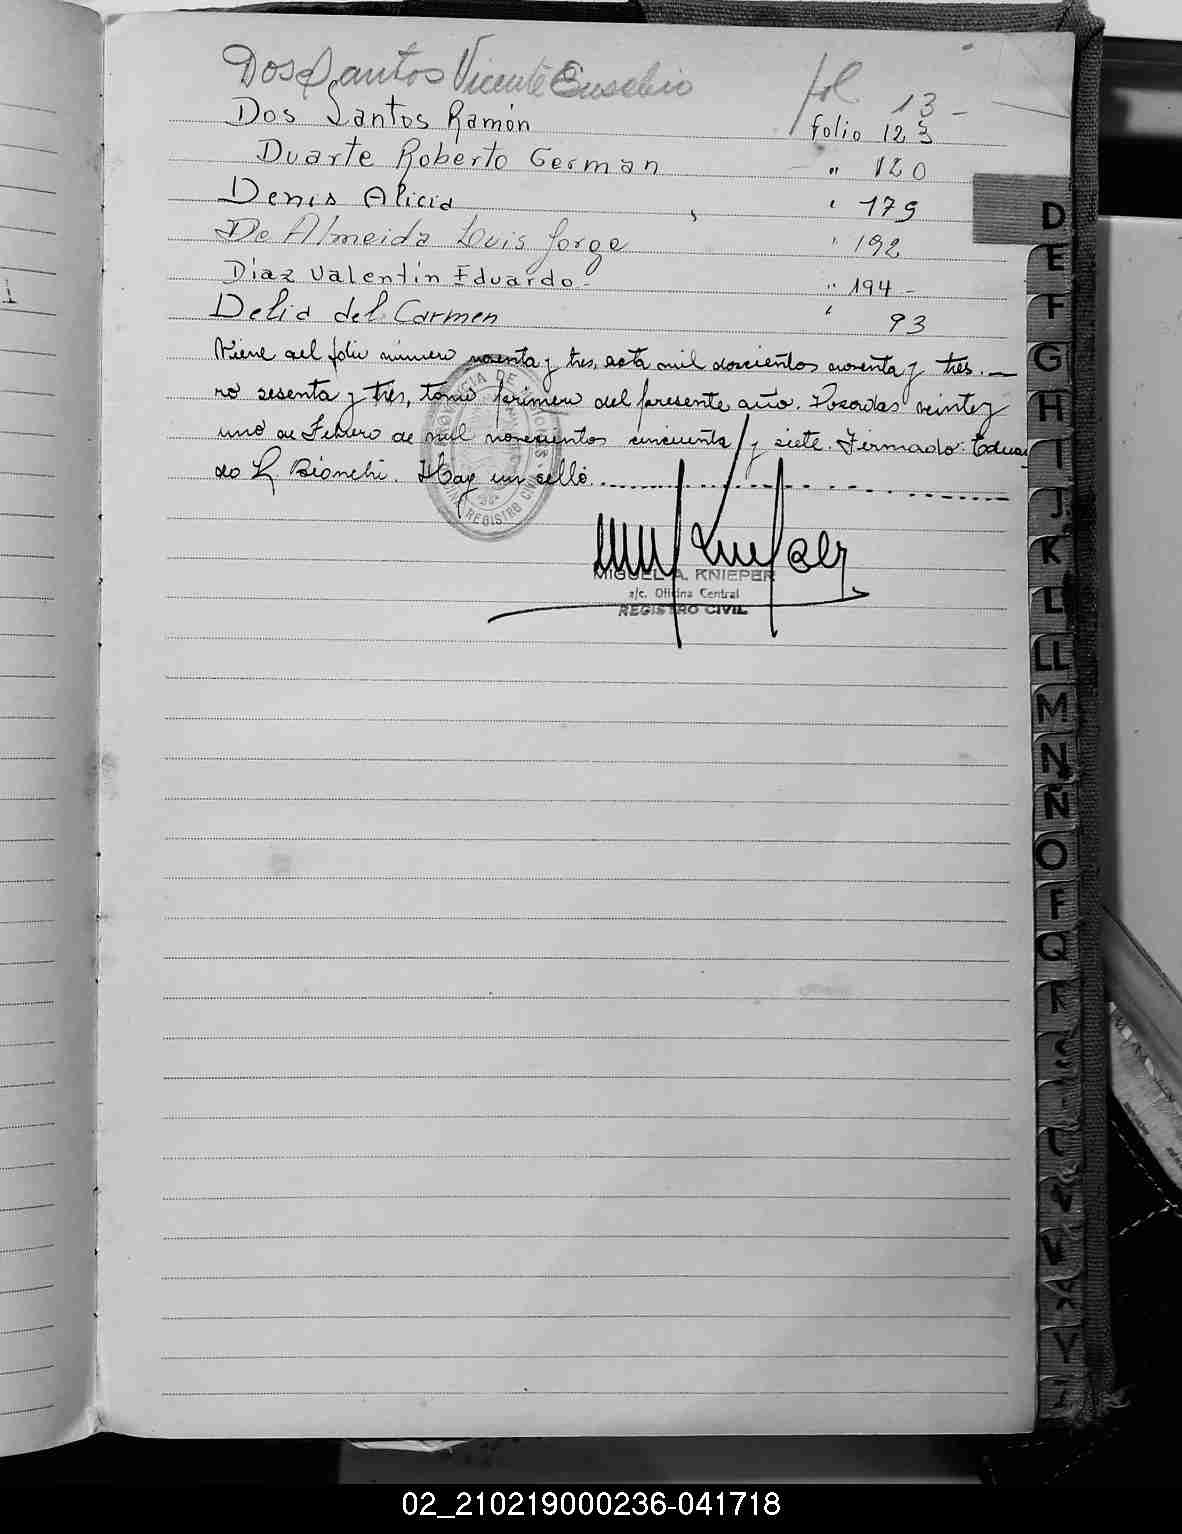 Dos Santos Vicente Eusebio fol 13 -
Dos Santos Ramón folio 123
Duarte Roberto German " 120
Denis Alicia " 179
De Almeida Luis Jorge " 192
Diaz Valentin Eduardo - " 194 -
Delia del Carmen " 93
Viene del folio número noventa y tres, acta mil doscientos noventa y tres. —
ro sesenta y tres, tomo primero del presente año. Posadas veinte y
uno de Febrero de mil novecientos cincuenta y siete. Firmado: Eduar
do L. Bianchi. Hay un sello.
PROVINCIA DE MISIONES
REGISTRO CIVIL
MIGUEL A. KNIEPER
a/c. Oficina Central
REGISTRO CIVIL
D
E
F
G
H
I
J
K
L
LL
M
N
Ñ
O
P
Q
R
S
T
V
Y
02_210219000236-041718